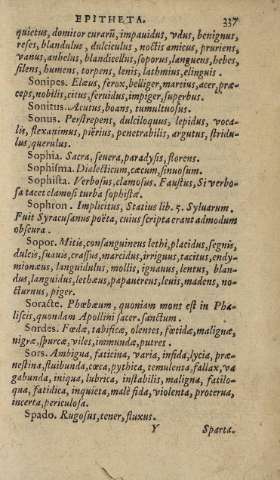 EPITHETA. 337
quietus, domitor curarū, impauidus, vdus, benignus,
reses, blandulus, dulciculus, noctis amicus, pruriens,
vanus, anhelus, blandisellus, soporus, languens, hebes,
silens, humens, torpens, lenis, lathmius, elinguis.
Sonipes. Elæus, ferox, belliger, marcius, acer, præ-
ceps, nobilis, citus, feruidus, impiger, superbus.
Sonitus. Acutus, boans, tumultuosus.
Sonus. Perstrepens, dulciloquus, lepidus, voca-
lis, flexanimus, pierius, penetrabilis, argutus, stridu-
lus, querulus.
Sophia. Sacra, seuera, paradysis, florens.
Sophisma. Dialecticum, cæcum, sinuosum.
Sophista. Verbosus, clamosus. Faustus, Si verbo-
sa tacet clamosi turba sophistæ.
Sophron. Implicitus, Statius lib. 5. Syluarum.
Fuit Syracusanus poëta, cuius scripta erant admodum
obscura.
Sopor. Mitis, consanguineus lethi, placidus, segnis,
dulcis, suauis, crassus, marcidus, irriguus, tacitus, endy-
mionæus, languidulus, mollis, ignauus, lentus, blan-
dus, languidus, lethæus, papauerens, leuis, madens, no-
cturnus, piger.
Soracte. Phœbæum, quoniam mons est in Pha-
liscis, quondam Apollini sacer. sanctum.
Sordes. Fœdæ, tabificæ, olentes, fœtidæ, malignæ,
nigræ, spurcæ, viles, immundæ, putres.
Sors. Ambigua, faticina, varia, infida, lycia, præ-
nestina, fluibunda, cœca, pythica, temulenta, fallax, va
gabunda, iniqua, lubrica, instabilis, maligna, fatilo-
qua, fatidica, inquieta, malè fida, violenta, proterua,
incerta, periculosa.
Spado. Rugosus, tener, fluxus.
Y Sparta.